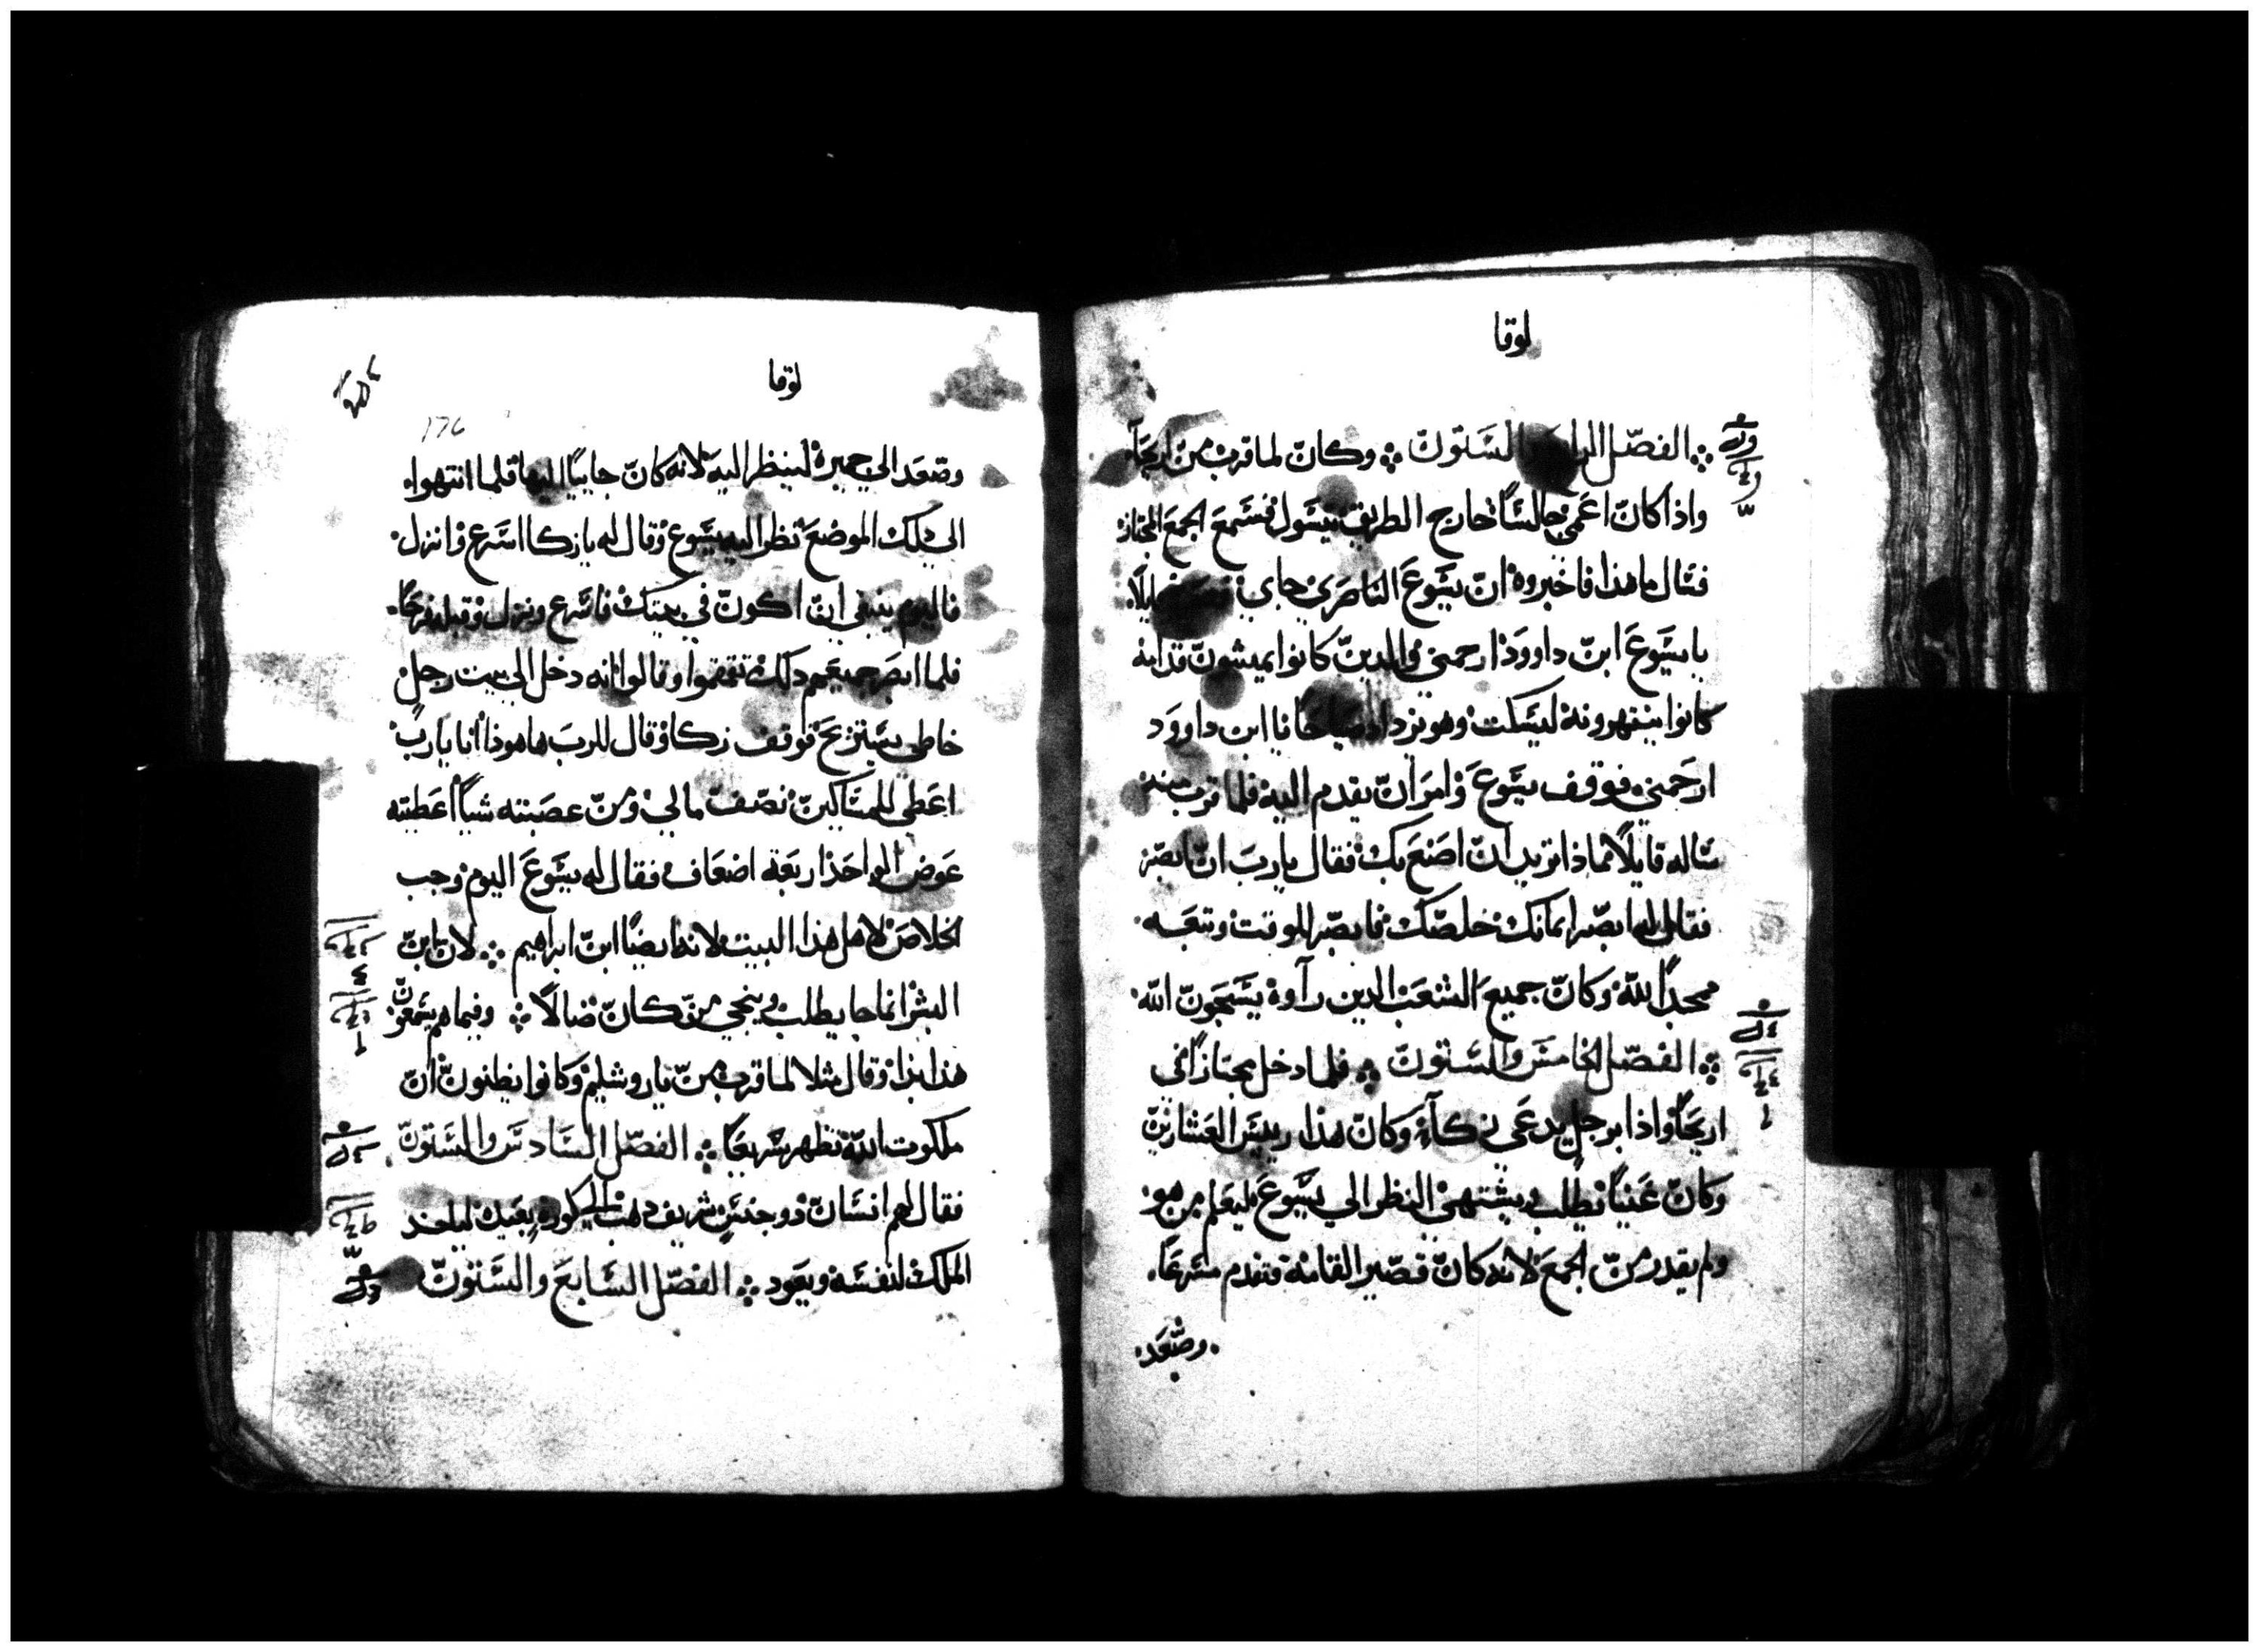 لوقا
الفصل الرابع والستون وكان لما قرب من اريحا
واذا كان اعمي جالسًا خارج الطريق يسول فسمع الجمع المجتاز
فقال ما هذا فاخبروه ان يسوع الناصري جاي قايلًا
يا يسوع ابن داوود ارحمني والدين كانوا يمشون قدامه
كانوا ينتهرونه ليسكت وهو يزداد صياحًا يا ابن داوود
ارحمني فوقف يسوع وامر ان يقدم اليه فلما قرب منه
ساله قايلًا ماذا تريد ان اصنع بك فقال يا رب ان ابصر
فقال له ابصر ايمانك خلصك فابصر للوقت وتبعه
ممجدًا لله وكان جميع الشعب الدين رآوه يسبحون الله
الفصل الخامس والستون فلما دخل مجتازًا في
اريحا واذا برجل يدعي زكآء وكان هذا رييس العشارين
وكان غنيًا يطلب ويشتهي النظر الي يسوع ليعلم من هو
ولم يقدر من الجمع لانه كان قصير القامة فتقدم مسرعًا
وصعد
لوقا
176
وصعد الي جميزه لينظر اليه لانه كان جاييًا اليها فلما انتهوا
الي تلك الموضع نظر اليه يسوع وقال له يا زكا اسرع وانزل
فاليوم ينبغي ان اكون في بيتك فاسرع ونزل وقبله فرحًا
فلما ابصر جميعهم دلك تقمقموا وقالوا انه دخل الي بيت رجل
خاطي يستريح فوقف زكا وقال للرب ها هوذا انا يا رب
اعطي للمساكين نصف مالي ومن عصبته شيًا اعطيته
عوض الواحد اربعة اضعاف فقال له يسوع اليوم وجب
الخلاص لاهل هذا البيت لانه ايضًا ابن ابراهيم لان ابن
البشر انما جا يطلب وينجي من كان ضالًا وفيما هم يسمعون
هذا بدا وقال مثلا لما قرب من ياروشليم وكانوا يظنون ان
ملكوت الله تظهر سريعًا الفصل السادس والستون
فقال لهم انسان دو جنس شريف دهب الي كورة بعيدة لياخد
الملك لنفسه ويعود الفصل السابع والستون